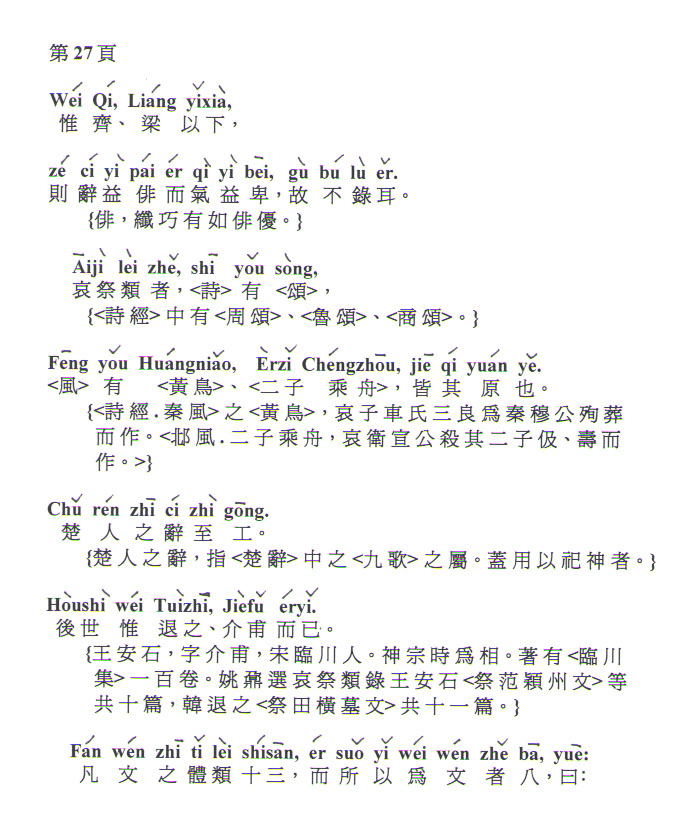 第 27 頁
Wéi Qí, Liáng yǐxià,
惟 齊、梁 以下，
zé cí yì pái ér qì yì bēi, gù bú lù ěr.
則 辭 益 俳 而 氣 益 卑，故 不 錄 耳。
{俳，纖巧有如俳優。}
Āijì lèi zhě, shī yǒu sòng,
哀 祭 類 者，<詩> 有 <頌>，
{<詩經> 中有 <周頌>、<魯頌>、<商頌>。}
Fēng yǒu Huángniǎo, Èrzǐ Chéngzhōu, jiē qí yuán yě.
<風> 有 <黃鳥>、<二子 乘 舟>，皆 其 原 也。
{<詩經.秦風> 之 <黃鳥>，哀子車氏三良爲秦穆公殉葬
而作。<邶風.二子乘舟，哀衛宣公殺其二子伋、壽而
作。>}
Chǔ rén zhī cí zhì gōng.
楚 人 之 辭 至 工。
{楚人之辭，指 <楚辭> 中之 <九歌> 之屬。蓋用以祀神者。}
Hòushì wéi Tuìzhī, Jièfǔ éryǐ.
後世 惟 退之、介甫 而已。
{王安石，字介甫，宋臨川人。神宗時爲相。著有 <臨川
集> 一百卷。姚鼐選哀祭類錄王安石 <祭范潁州文> 等
共十篇，韓退之 <祭田橫墓文> 共十一篇。}
Fán wén zhī tǐ lèi shísān, ér suǒ yǐ wéi wén zhě bā, yuē:
凡 文 之 體 類 十三，而 所 以 爲 文 者 八，曰：